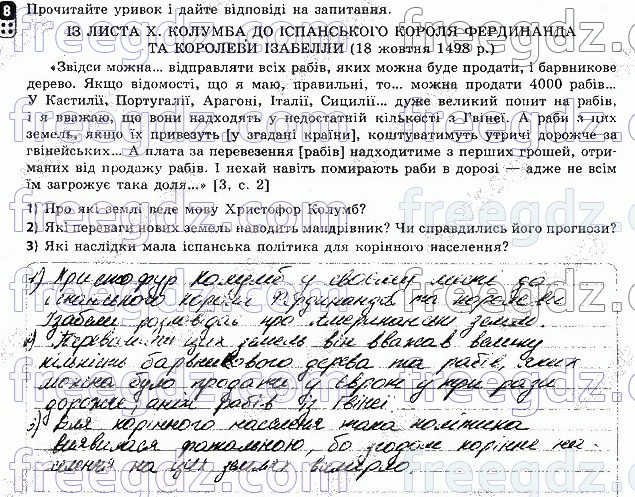 8 Прочитайте уривок і дайте відповіді на запитання.
ІЗ ЛИСТА Х. КОЛУМБА ДО ІСПАНСЬКОГО КОРОЛЯ ФЕРДИНАНДА
ТА КОРОЛЕВИ ІЗАБЕЛЛИ (18 жовтня 1498 р.)
«Звідси можна... відправляти всіх рабів, яких можна буде продати, і барвникове
дерево. Якщо відомості, що я маю, правильні, то... можна продати 4000 рабів...
У Кастилії, Португалії, Арагоні, Італії, Сицилії... дуже великий попит на рабів,
і я вважаю, що вони надходять у недостатній кількості з Гвінеї. А раби з цих
земель, якщо їх привезуть [у згадані країни], коштуватимуть утричі дорожче за
гвінейських... А плата за перевезення [рабів] надходитиме з перших грошей, отри-
маних від продажу рабів. І нехай навіть помирають раби в дорозі — адже не всім
їм загрожує така доля...» [3, с. 2]
1) Про які землі веде мову Христофор Колумб?
2) Які переваги нових земель наводить мандрівник? Чи справдились його прогнози?
3) Які наслідки мала іспанська політика для корінного населення?
1) Христофор Колумб у своєму листі до
іспанського короля Фердинанда та королеви
Ізабели розповідав про Американські землі.
2) Перевагами цих земель він вважав велику
кількість барвникового дерева та рабів, яких
можна було продати у Європі у три рази
дорожче аніж рабів із Гвінеї
3) Для корінного населення така політика
виявилася фатальною, бо згодом корінне на-
селення на цих землях вимерло.
freegdz.com